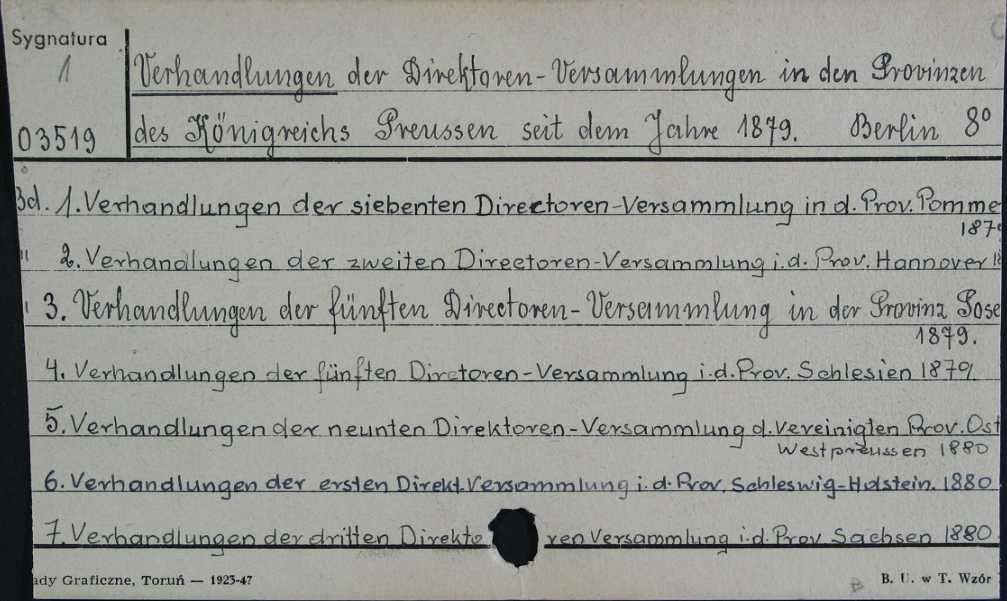 Sygnatura
1
03519
Verhandlungen der Direktoren-Versammlungen in den Provinzen
des Königreichs Preussen seit dem Jahre 1879. Berlin 8°
Bd. 1. Verhandlungen der siebenten Directoren-Versammlung in d. Prov. Pomme
187
" 2. Verhandlungen der zweiten Directoren-Versammlung i. d. Prov. Hannover 18
3. Verhandlungen der fünften Directoren-Versammlung in der Provinz Pose
1879.
4. Verhandlungen der fünften Diretoren-Versammlung i.d. Prov. Schlesien 1879.
5. Verhandlungen der neunten Direktoren-Versammlung d. vereinigten Prov. Ost
Westpreussen 1880
6. Verhandlungen der ersten Direkt. Versammlung i. d. Prov. Schleswig-Holstein. 1880
7. Verhandlungen der dritten Direkto ren Versammlung i.d. Prov Sachsen 1880
ady Graficzne, Toruń — 1923-47 B. U. w T. Wzór